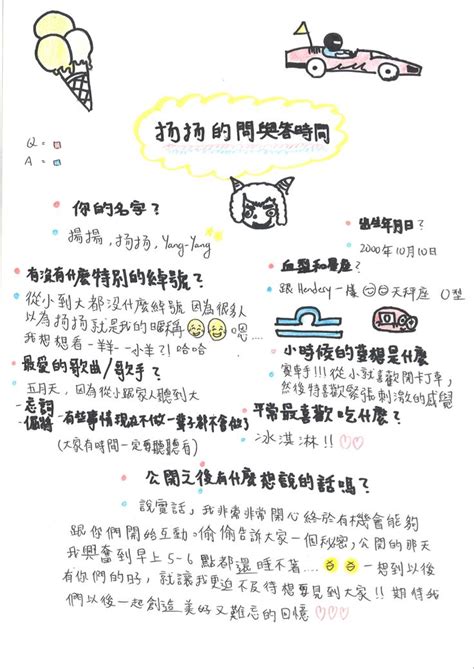 扬扬的問與答時間
Q=
A=
你的名字?
揚揚,扬扬,Yang-Yang
出生年月日?
2000年10月10日
有沒有什麼特別的綽號?
從小到大都沒什麼綽號 因為很多人
以為扬扬就是我的暱稱 嗯....
我想想看-羊羊--小羊?! 哈哈
血型和星座?
跟 Hendery 一樣 天秤座 O型
最愛的歌曲/歌手?
五月天,因為從小跟家人聽到大
-忘詞
倔強-有些事情現在不做一輩子都不會做了
(大家有時間一定要聽聽看)
小時候的夢想是什麼
賽車手!!! 從小就喜歡開卡丁車,
然後特喜歡緊張刺激的感覺
平常最喜歡吃什麼?
冰淇淋!!♡♡
公開之後有什麼想說的話嗎?
說實話,我非常非常開心終於有機會能夠
跟你們開始互動。偷偷告訴大家一個秘密,公開的那天
我興奮到早上5-6點都還睡不著.... 一想到以後
有你們的好,就讓我更迫不及待想要見到大家!! 期待我
們以後一起創造美好又難忘的回憶♡♡♡